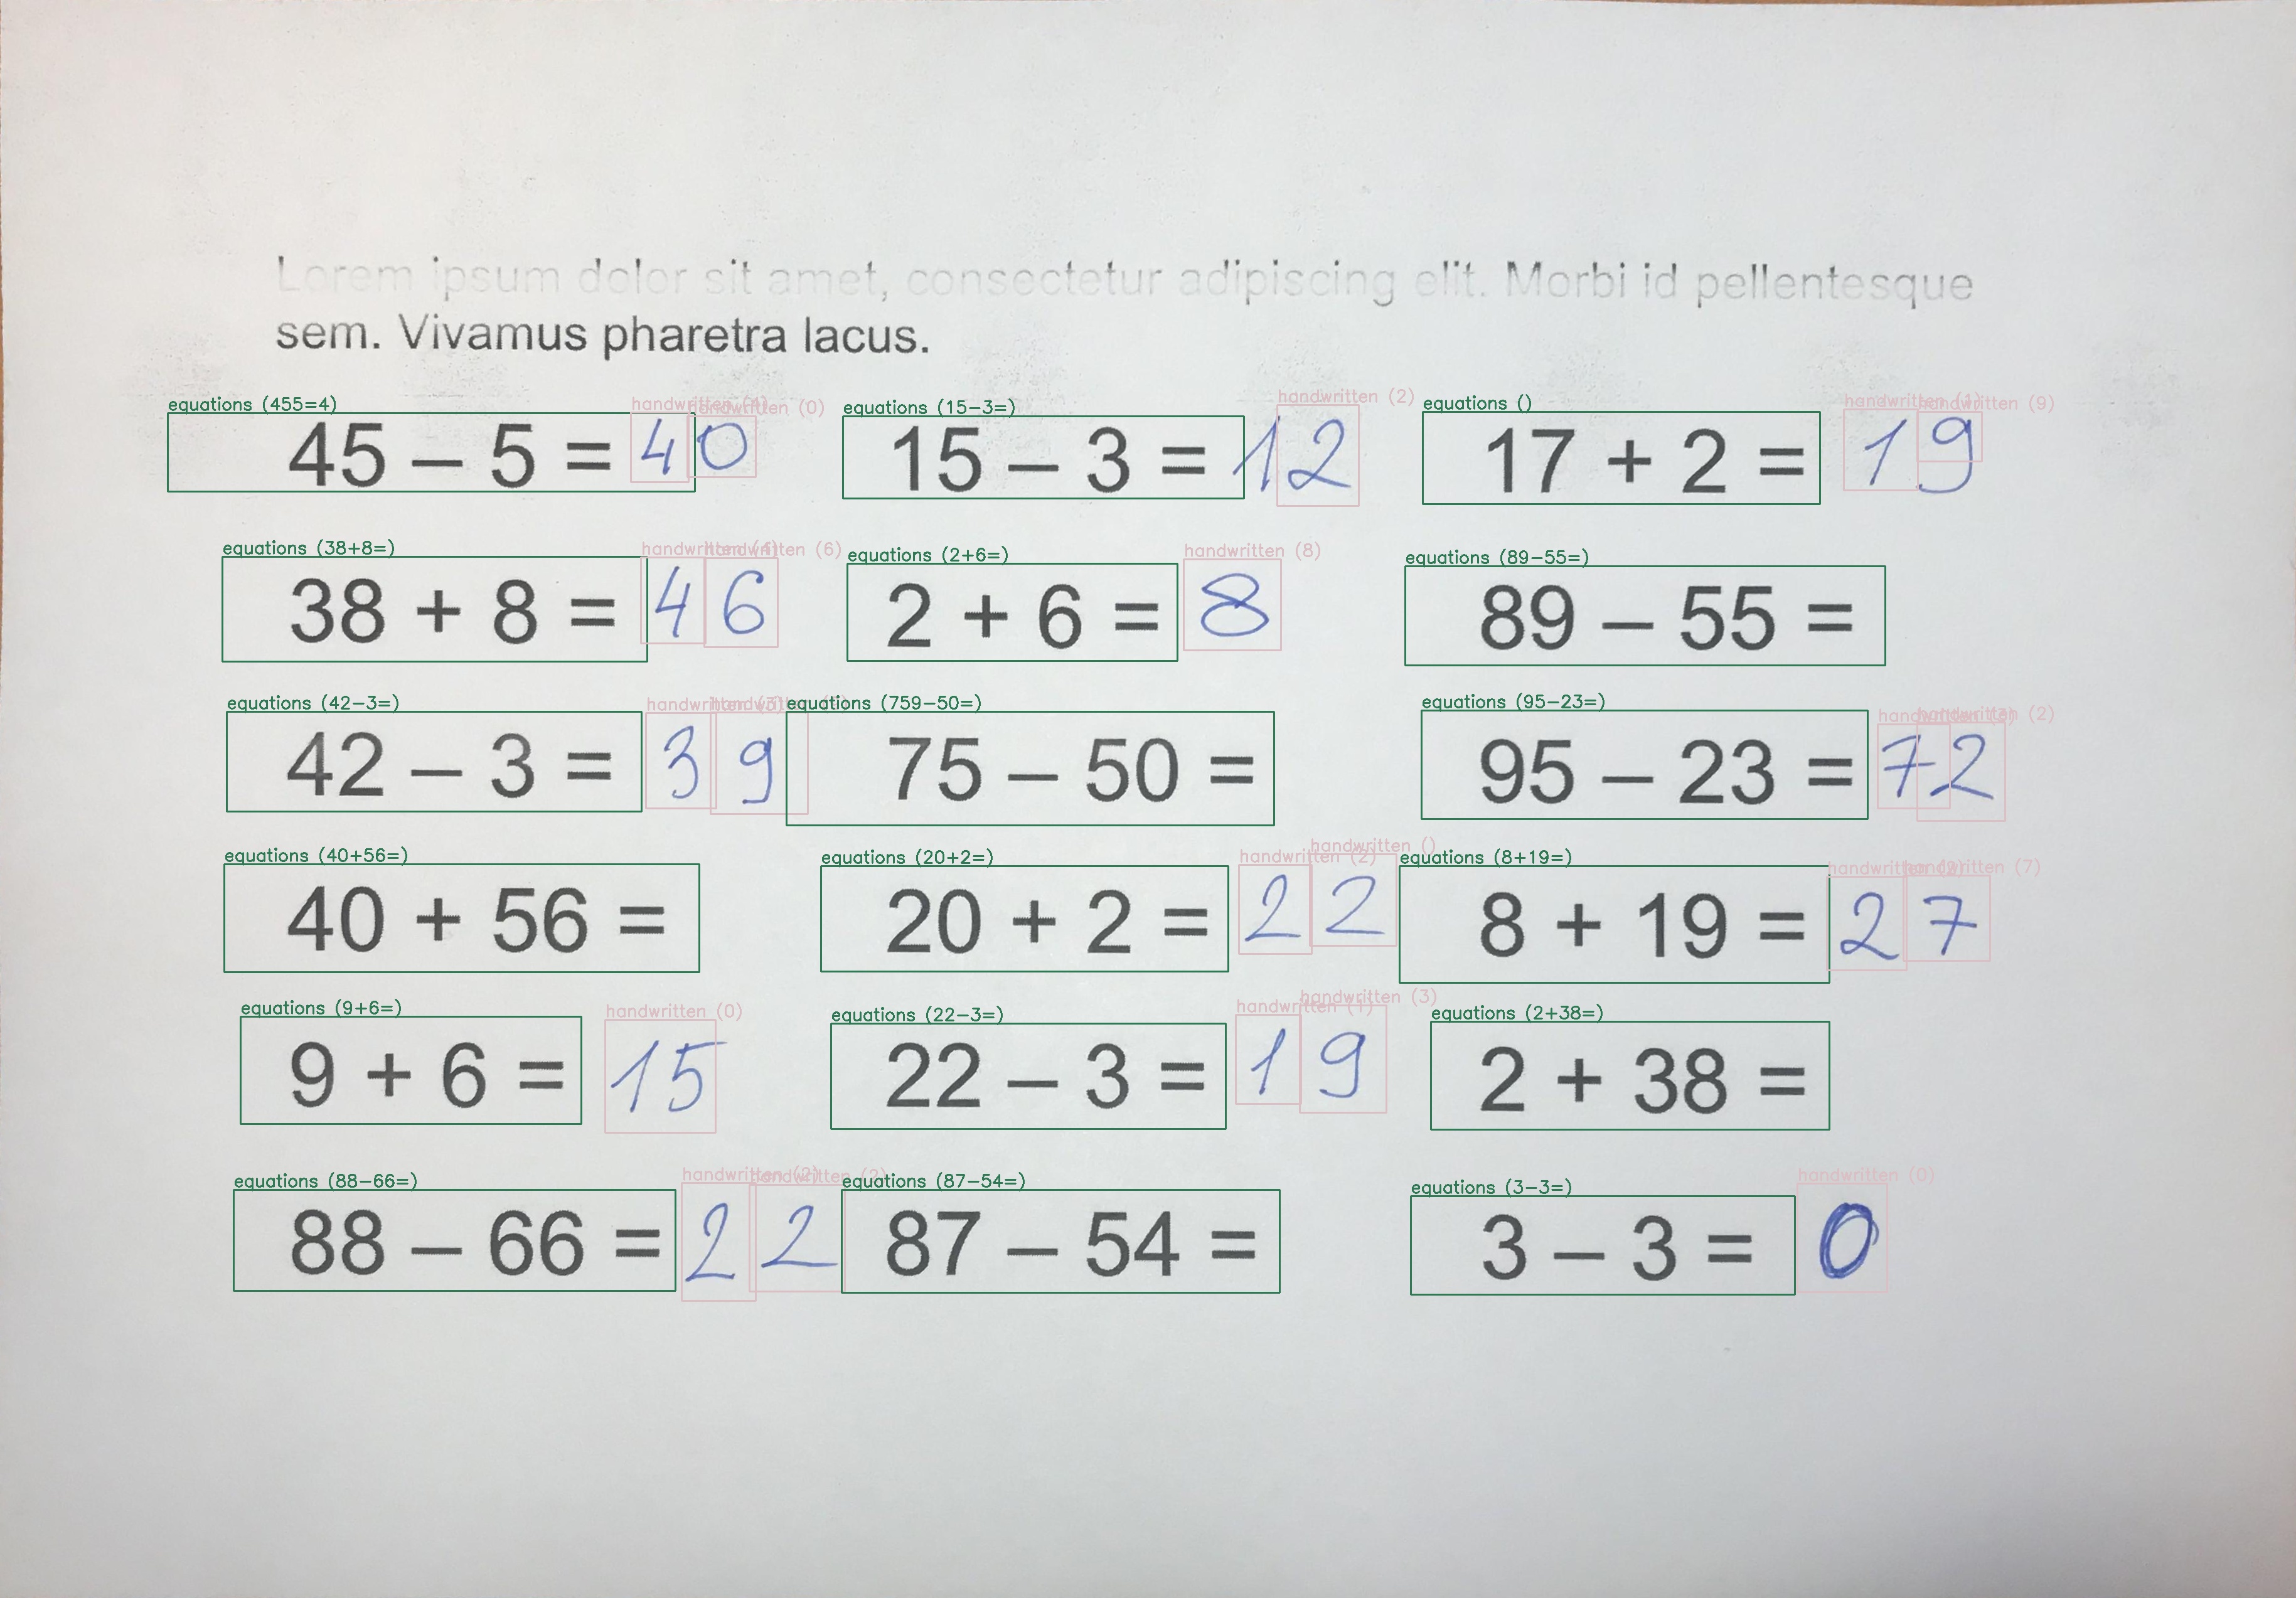 Lorem ipsum dolor sit amet, consectetur adipiscing elit. Morbi id pellentesque
sem. Vivamus pharetra lacus.
equations (455=4) handwritten handwritten (0) equations (15-3=) handwritten (2) equations () handwritten (1) handwritten (9)
45 – 5 = 40 15 – 3 = 12 17 + 2 = 19
equations (38+8=) handwritten (4) handwritten (6) equations (2+6=) handwritten (8) equations (89-55=)
38 + 8 = 46 2 + 6 = 8 89 – 55 =
equations (42-3=) handwritten (3) handwritten equations (759-50=) equations (95-23=) handwritten handwritten (2)
42 – 3 = 39 75 – 50 = 95 – 23 = 72
equations (40+56=) equations (20+2=) handwritten (2) handwritten () equations (8+19=) handwritten handwritten (7)
40 + 56 = 20 + 2 = 22 8 + 19 = 27
equations (9+6=) handwritten (0) equations (22-3=) handwritten (1) handwritten (3) equations (2+38=)
9 + 6 = 15 22 – 3 = 19 2 + 38 =
equations (88-66=) handwritten (2) handwritten (2) equations (87-54=) equations (3-3=) handwritten (0)
88 – 66 = 22 87 – 54 = 3 – 3 = 0